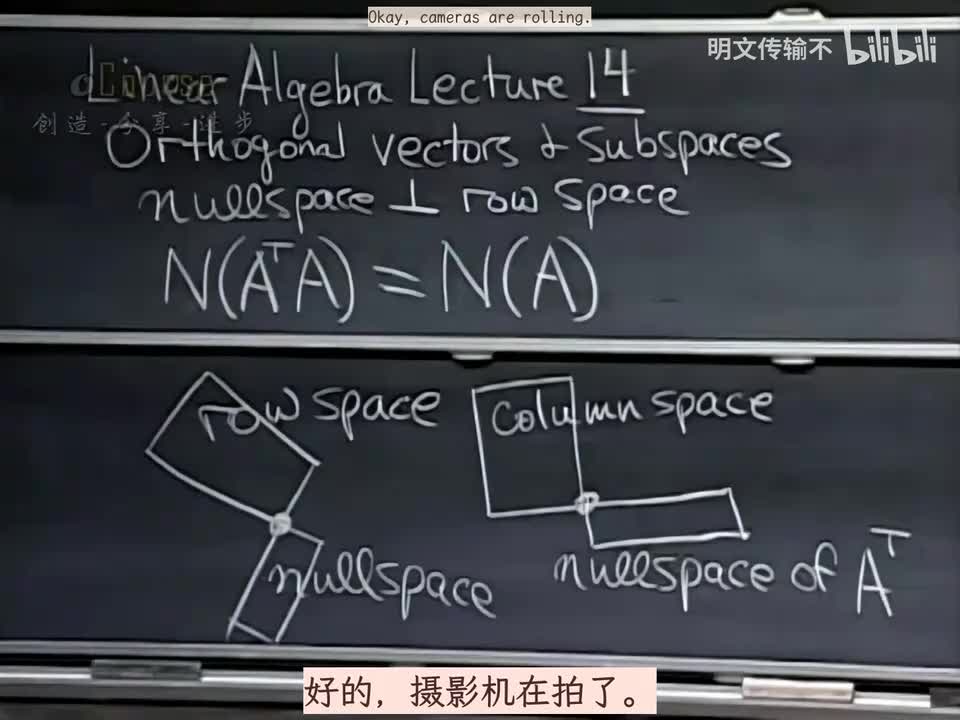 Okay, cameras are rolling.
明文传输不 bilibili
Linear Algebra Lecture 14
创造·分享·进步
Orthogonal vectors & Subspaces
nullspace ⊥ row space
N(AᵀA) = N(A)
row space
column space
nullspace
nullspace of Aᵀ
好的，摄影机在拍了。